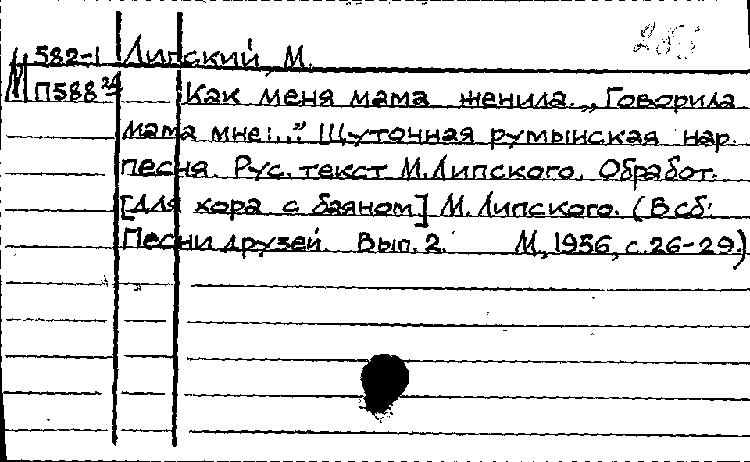 582-1 Липский, М.
М П588 24
Как меня мама женила. „Говорила
мама мне!..” Шутонная румынская нар.
песня. Рус. текст М. Липского. Обработ.
[для хора с баяном] М. Липского. (В сб:
Песни друзей. Вып. 2. М, 1956, с. 26-29.)